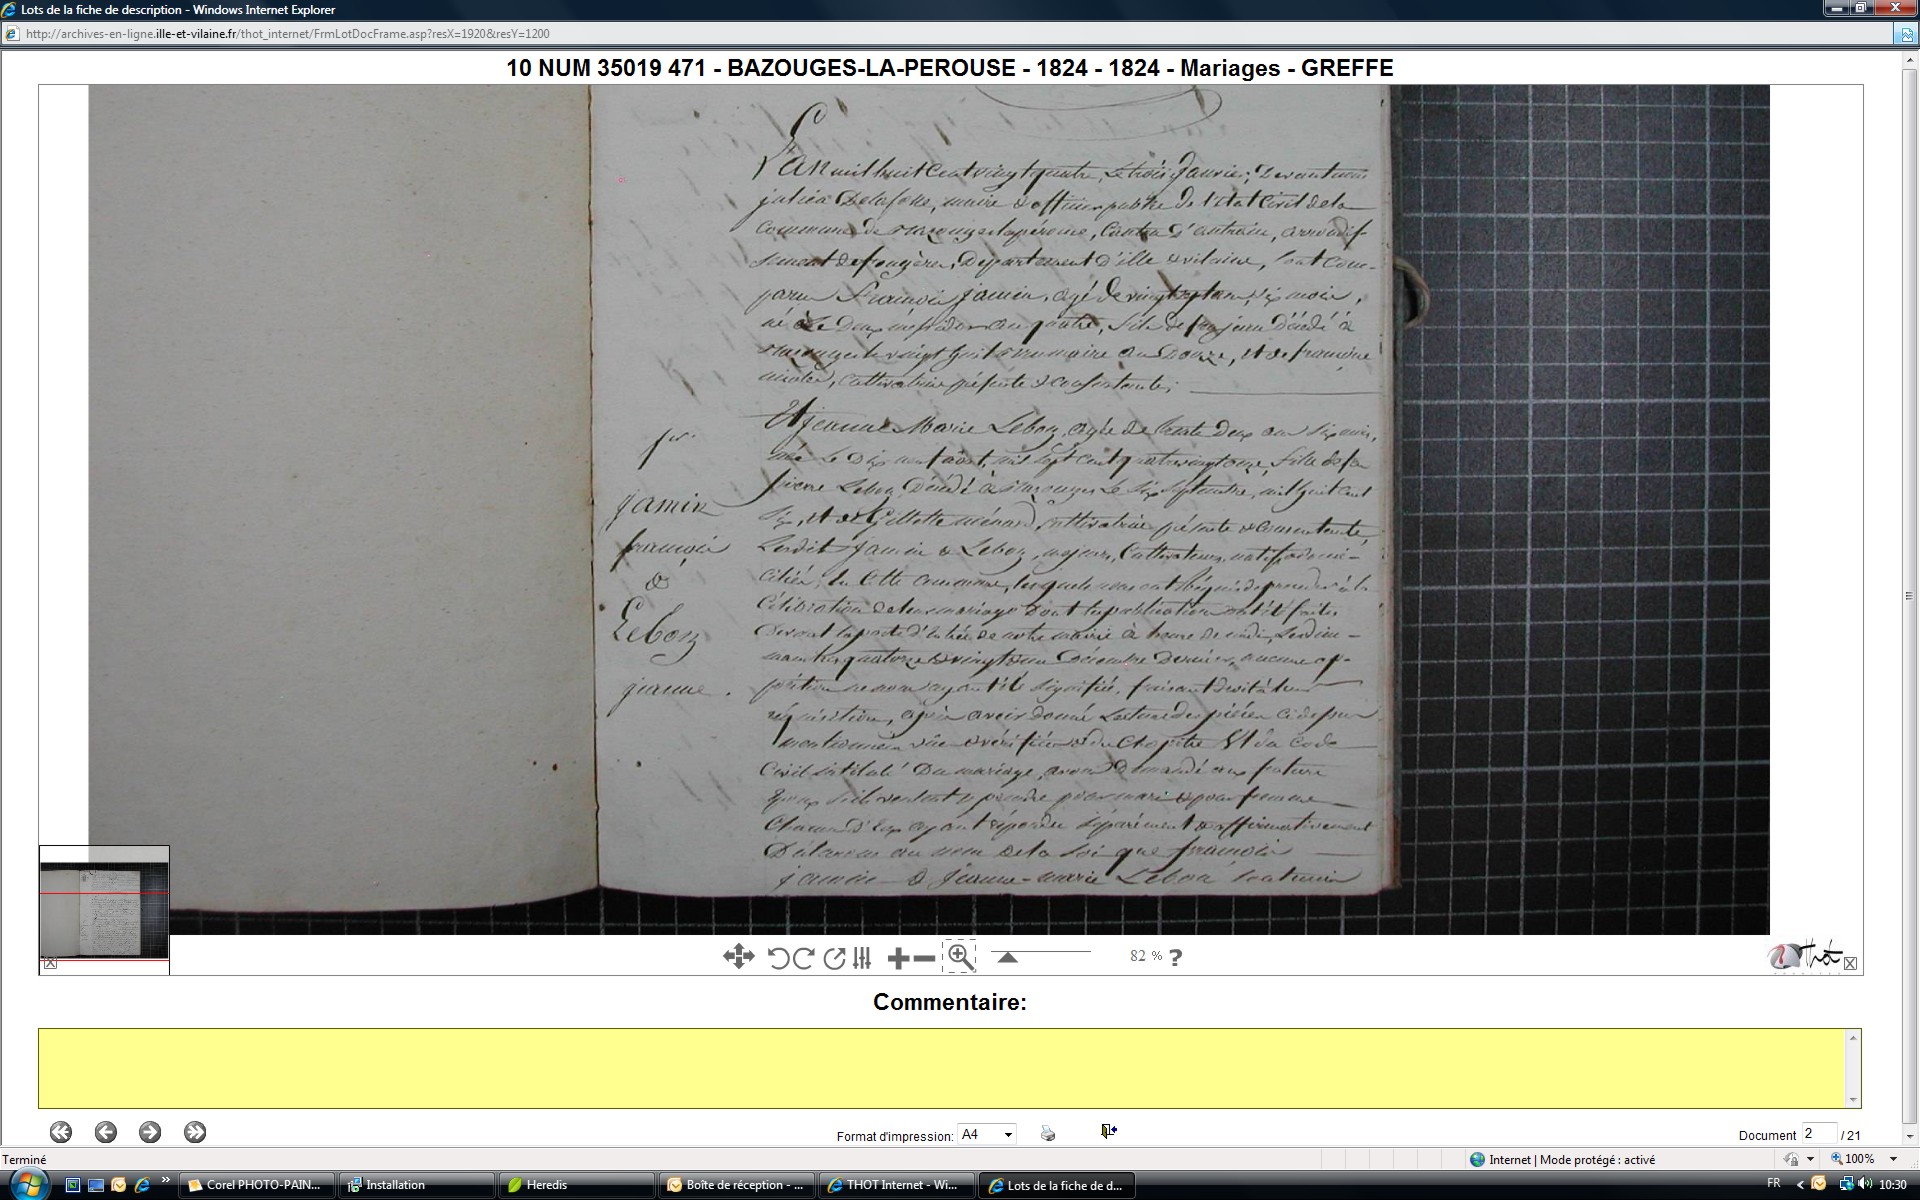 Lots de la fiche de description - Windows Internet Explorer
http://archives-en-ligne.ille-et-vilaine.fr/thot_internet/FrmLotDocFrame.asp?resX=1920&resY=1200
10 NUM 35019 471 - BAZOUGES-LA-PEROUSE - 1824 - 1824 - Mariages - GREFFE
L'an mil huit cent vingt quatre, le trois janvier, devant nous
julien Delafosse, maire & officier public de l'Etat Civil de la
Commune de Bazouges lapérouse, Canton d'antrain, arrondis-
sement de fougères, Département d'ille & vilaine, sont com-
parus François jamin, agé de vingt sept ans, six mois,
né le Deux messidor an quatre, fils de feu jean Décédé à
Bazouges le vingt huit brumaire an Douze, et de françoise
cultivatrice présente & consentante;
Et jeanne Marie Lebon, agée de trente Deux ans six mois,
née le Dix mil sept cent quatre vingt onze, fille de feu
pierre Lebon, Décédé à Bazouges le six septembre, mil huit cent
six, et de Gillette ménard, cultivatrice présente & consentante
Lesdits jamin & Lebon, majeurs, Cultivateurs, natifs & domi-
ciliés, en Cette commune, lesquels nous ont requis de procéder à la
Célébration de leur mariage dont les publications ont été faites
Devant la porte d'entrée de notre mairie à heure de midi, les dim-
manches quatorze & vingt un Décembre Dernier, aucune op-
position ne nous ayant été signifiée, faisant droit à leur
réquisition, après avoir donné Lecture des pièces ci dessus
mentionnées & vérifiées & du Chapitre VI du Code
Civil intitulé Du mariage, avons demandé aux futurs
Epoux s'ils veulent se prendre pour mari & pour femme
Chacun d'Eux ayant répondu séparément & affirmativement
Déclarons au nom de la Loi que françois
jamin & Jeanne-marie Lebon sont unis
1er
jamin
françois
&
Lebon
jeanne .
82 % ?
Thot
Commentaire:
Format d'impression: A4
Document 2 / 21
Terminé
Internet | Mode protégé : activé
100%
Corel PHOTO-PAIN...
Installation
Heredis
Boîte de réception - ...
THOT Internet - Wi...
Lots de la fiche de d...
FR
10:30